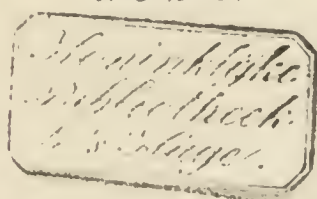 Koninklijke
Bibliotheek
te s'Hage.